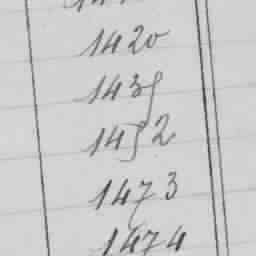 1420
1435
1452
1473
1474